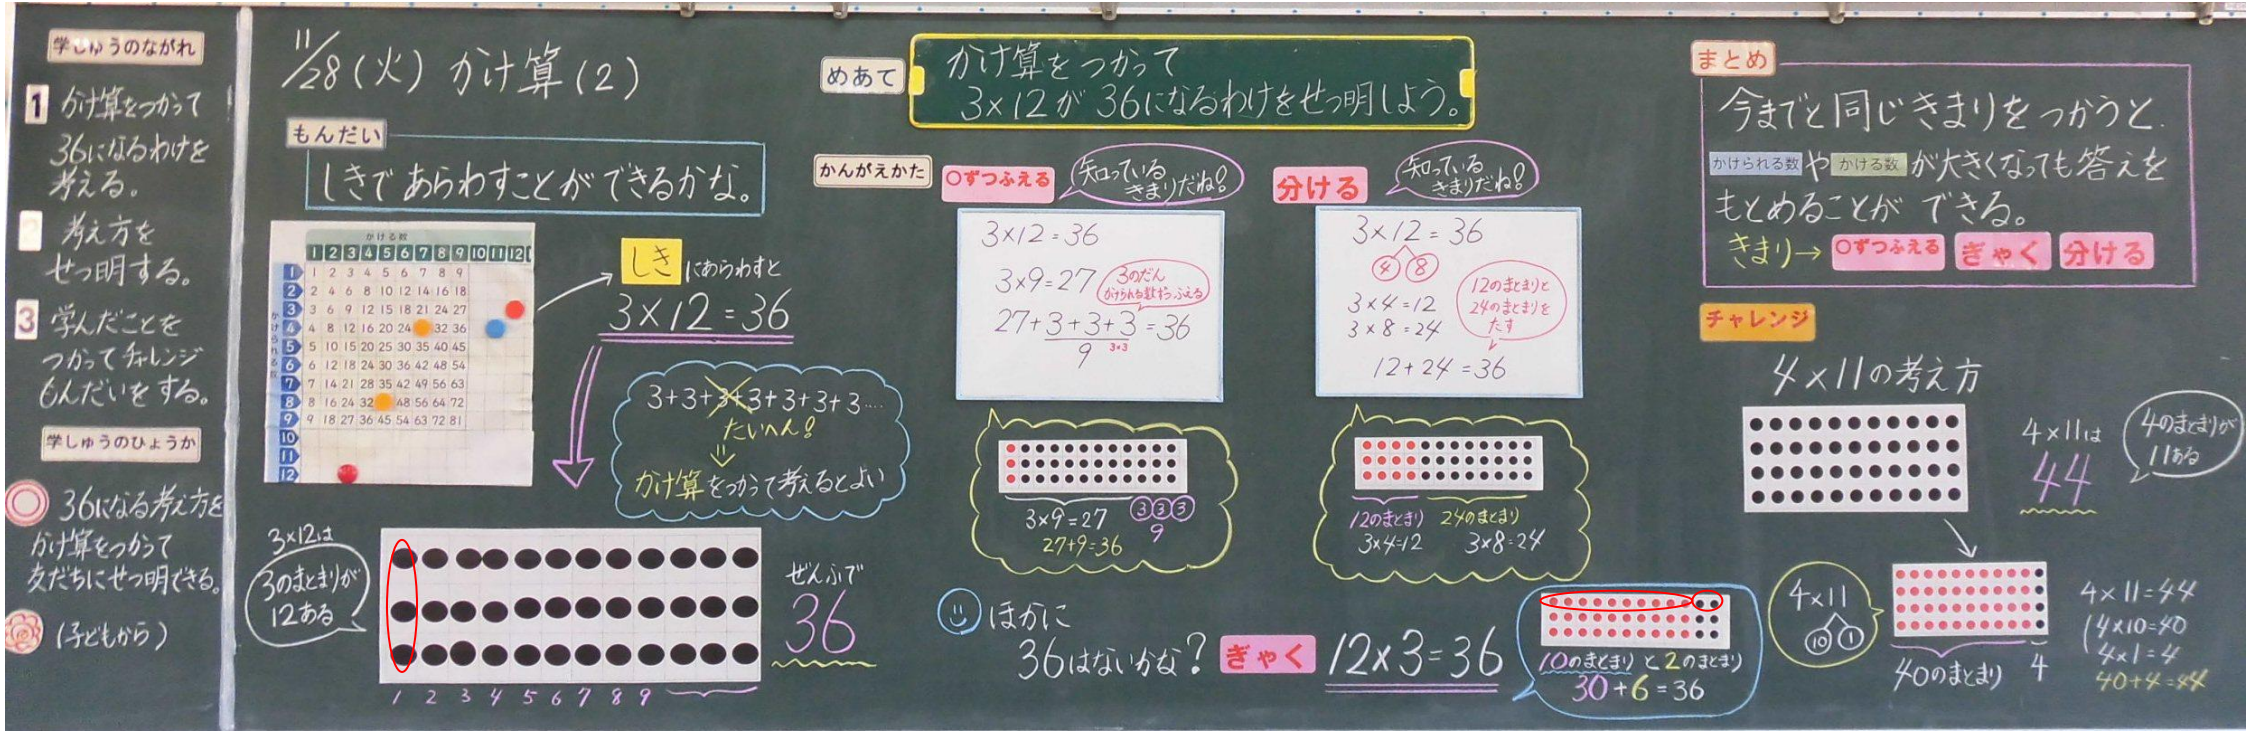 学しゅうのながれ
1 かけ算をつかって
36になるわけを
考える。
2 考え方を
せつ明する。
3 学んだことを
つかってチャレンジ
もんだいをする。
学しゅうのひょうか
◎ 36になる考え方を
かけ算をつかって
友だちにせつ明できる。
(子どもから)
11/28(火) かけ算(2)
もんだい
しきであらわすことができるかな。
かける数
1 2 3 4 5 6 7 8 9 10 11 12
かけられる数
1 1 2 3 4 5 6 7 8 9
2 2 4 6 8 10 12 14 16 18
3 3 6 9 12 15 18 21 24 27
4 4 8 12 16 20 24 32 36
5 5 10 15 20 25 30 35 40 45
6 6 12 18 24 30 36 42 48 54
7 7 14 21 28 35 42 49 56 63
8 8 16 24 32 48 56 64 72
9 9 18 27 36 45 54 63 72 81
10
11
12
しきにあらわすと
3×12=36
3+3+3+3+3+3+3....
たいへん!
かけ算をつかって考えるとよい
3×12は
3のまとまりが
12ある
1 2 3 4 5 6 7 8 9
ぜんぶで
36
めあて
かけ算をつかって
3×12が36になるわけをせつ明しよう。
かんがえかた
○ずつふえる
知っている
きまりだね!
3×12=36
3×9=27
3のだん
かけられる数ずつふえる
27+3+3+3=36
9
3×3
3×9=27
3 3 3
27+9=36
9
分ける
知っている
きまりだね!
3×12=36
4 8
3×4=12
3×8=24
12のまとまりと
24のまとまりを
たす
12+24=36
12のまとまり 24のまとまり
3×4=12 3×8=24
ほかに
36はないかな?
ぎゃく
12×3=36
10のまとまりと2のまとまり
30+6=36
まとめ
今までと同じきまりをつかうと、
かけられる数やかける数が大きくなっても答えを
もとめることができる。
きまり→ ○ずつふえる ぎゃく 分ける
チャレンジ
4×11の考え方
4×11は
44
4のまとまりが
11ある
4×11
10 1
40のまとまり 4
4×11=44
4×10=40
4×1=4
40+4=44